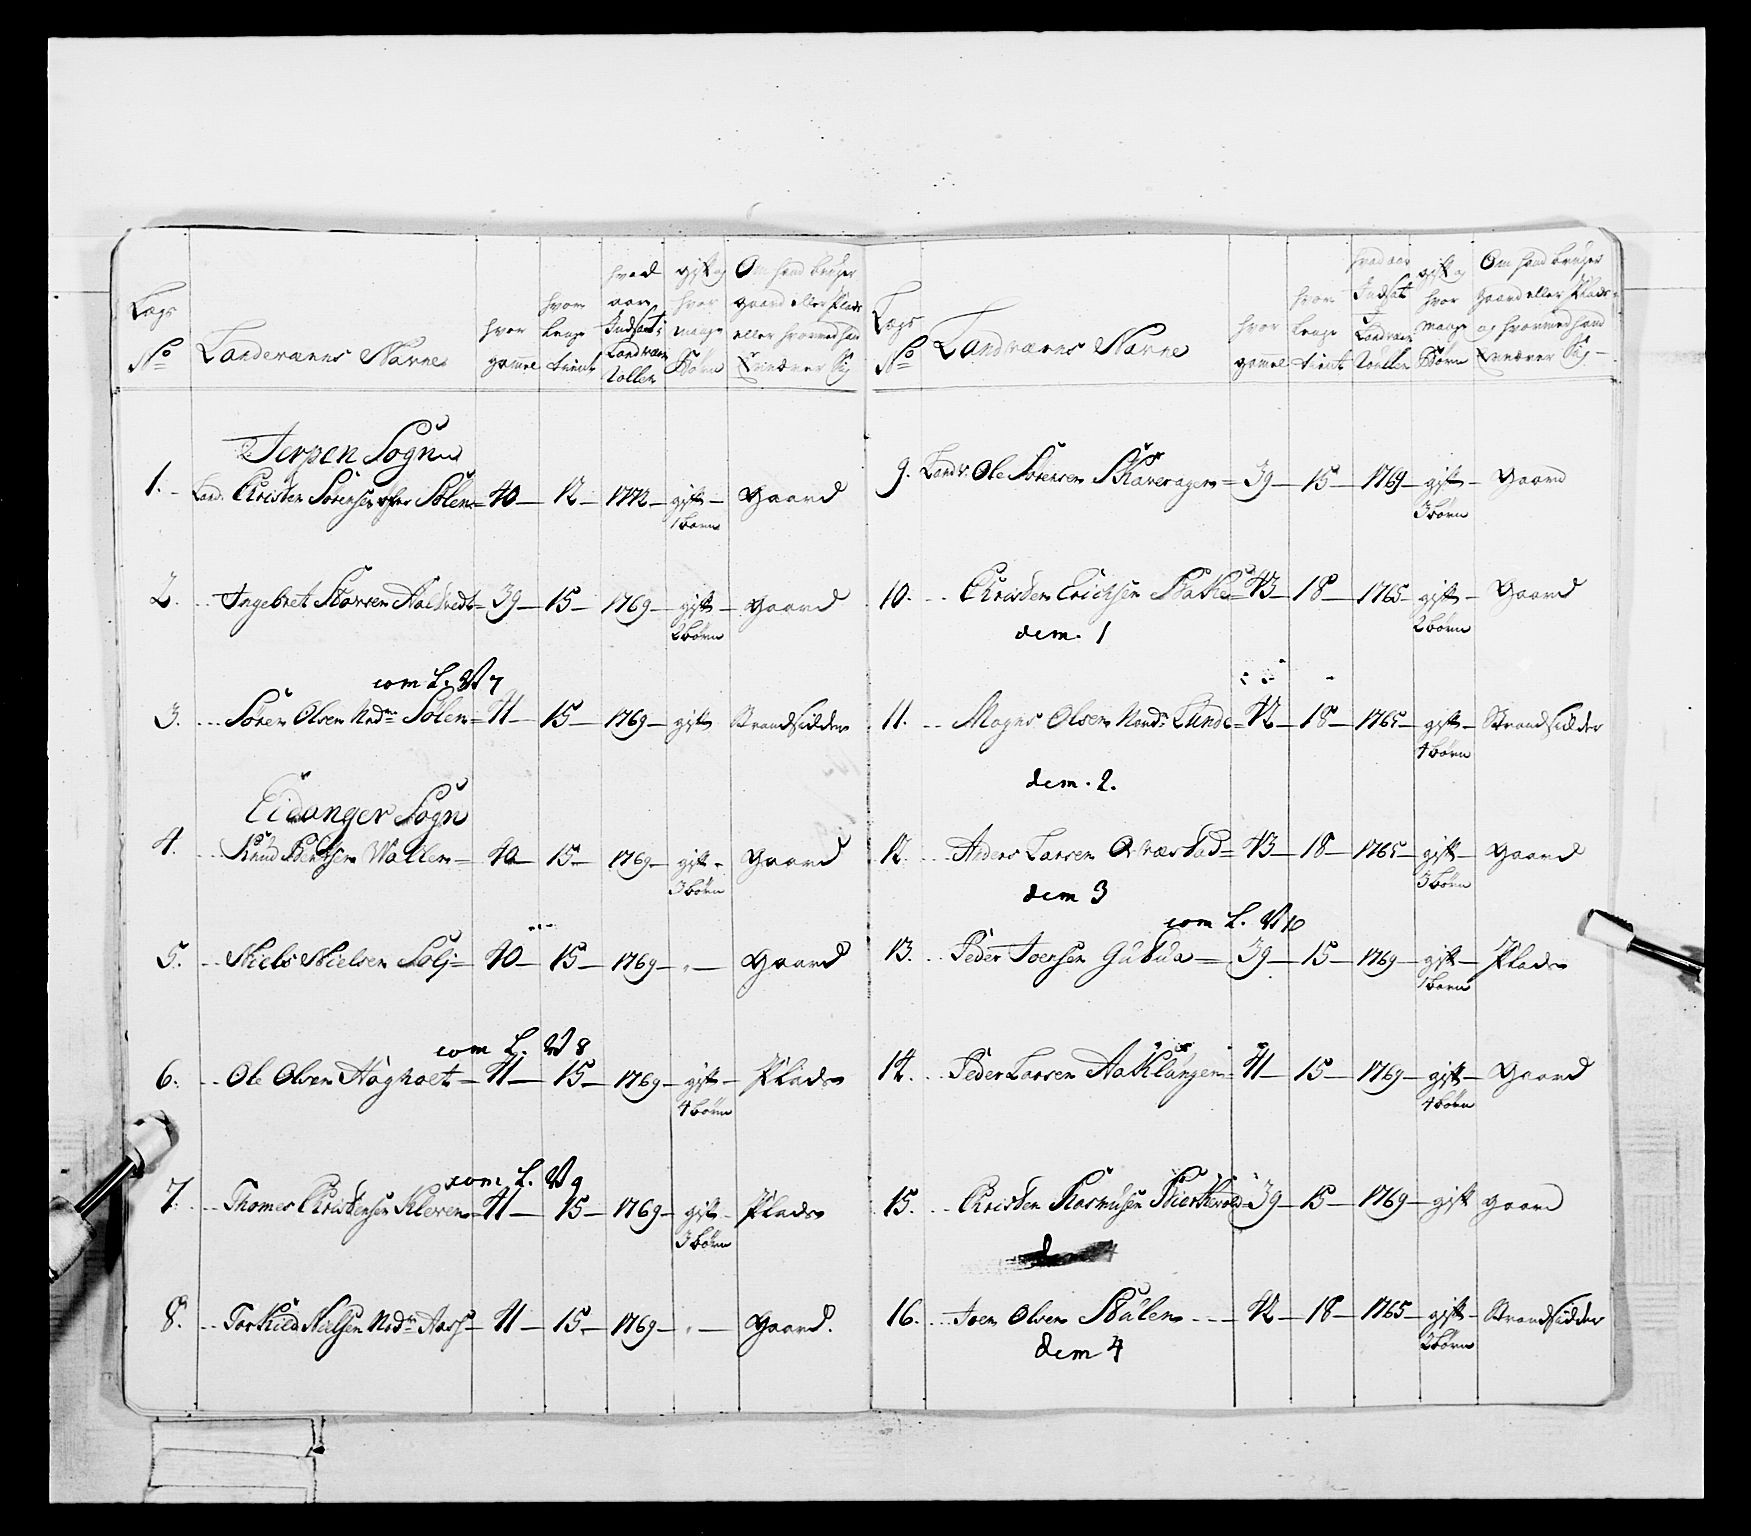 Lægs No
Landværns Navne
hvor gamel
hvor lenge tient
hvad aar Indsat i Landværn Rollen
gift og hvor mange Børn
Om hand bruger gaard eller Plads eller hvormed han Ernærer Sig
Jerpen Sogn
1. Landv. Christen Sørensen Sølem 40 12 1772 gift Gaard
1 barn
2. Ingebret Larsen 39 15 1769 gift Gaard
2 børn
com L. W 7
3. Søren Olsen Nedre Sølem 41 15 1769 gift Strandsidder
Eidanger Sogn
4. Knud Bentsen Wallen 40 15 1769 gift Gaard
3 børn
5. Niels Nielsen 40 15 1769 Gaard
com L. W 8
6. Ole Olsen Høgholt 41 15 1769 gift Plads
4 børn
com L. W 9
7. Thomes Christensen Kleven 41 15 1769 gift Plads
3 børn
8. Torkild Nielsen Nedre Aas 41 15 1769 Gaard.
Lægs No
Landværns Navne
hvor gamel
hvor lenge tient
hvad aar Indsat i Landværn Roullen
gift og hvor mange Børn
Om hand bruger Gaard eller Plads og hvormed hand Ernærer Sig
9. Landv. Ole Sørensen Skaveragen 39 15 1769 gift Gaard
3 børn
10. Christen Erichsen 43 18 1765 gift Gaard
2 børn
dem. 1
11. Mogns Olsen Nordre Lunde 42 18 1765 gift Strandsidder
4 børn
dem. 2.
12. Anders Larsen 43 18 1765 gift Gaard
3 børn
dem 3
com L. W 10
13. Peder Joersen 39 15 1769 gift Plads
1 barn
14. Peder Larsen Aaklungen 41 15 1769 gift Gaard
4 børn
15. Christen Rasmusen 39 15 1769 gift gaard
16. Joen Olsen Stulen 42 18 1765 gift Strandsidder
2 børn
dem 4